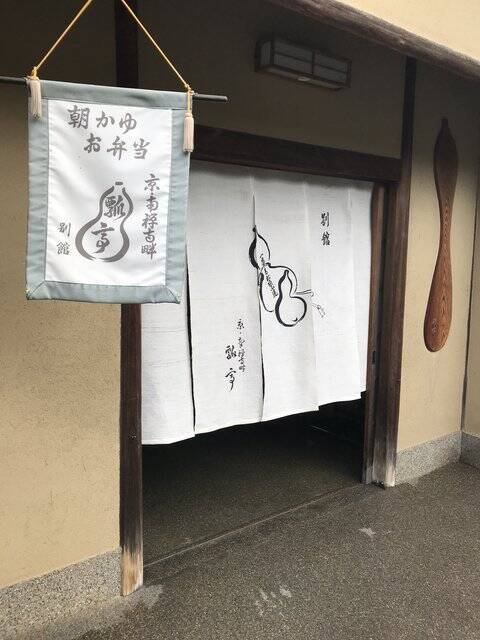 朝かゆ
お弁当
京南禅寺畔
瓢亭
別館
別館
京・南禅寺畔
瓢亭